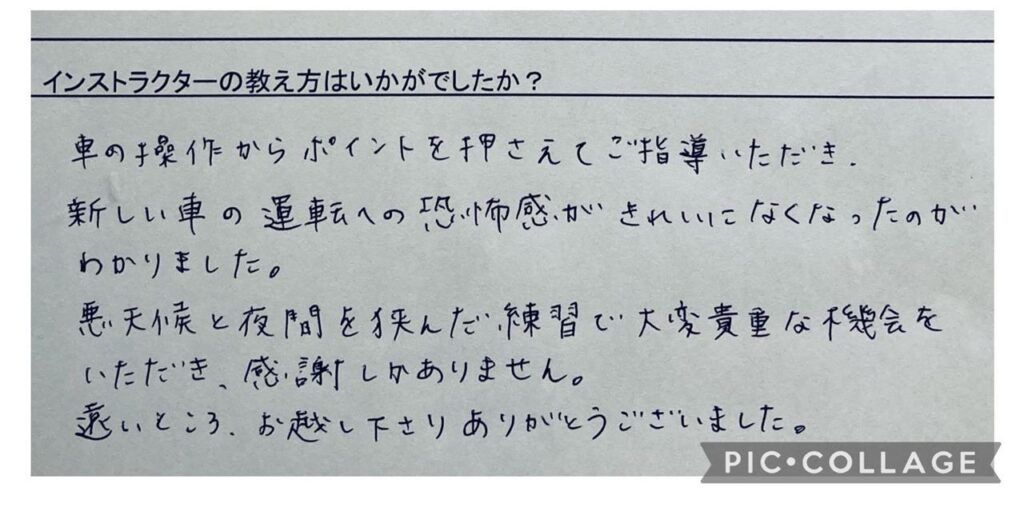 インストラクターの教え方はいかがでしたか？
車の操作からポイントを押さえてご指導いただき、
新しい車の運転への恐怖感がきれいになくなったのが
わかりました。
悪天候と夜間を狭んだ練習で大変貴重な機会を
いただき、感謝しかありません。
遠いところ、お越し下さりありがとうございました。
PIC•COLLAGE